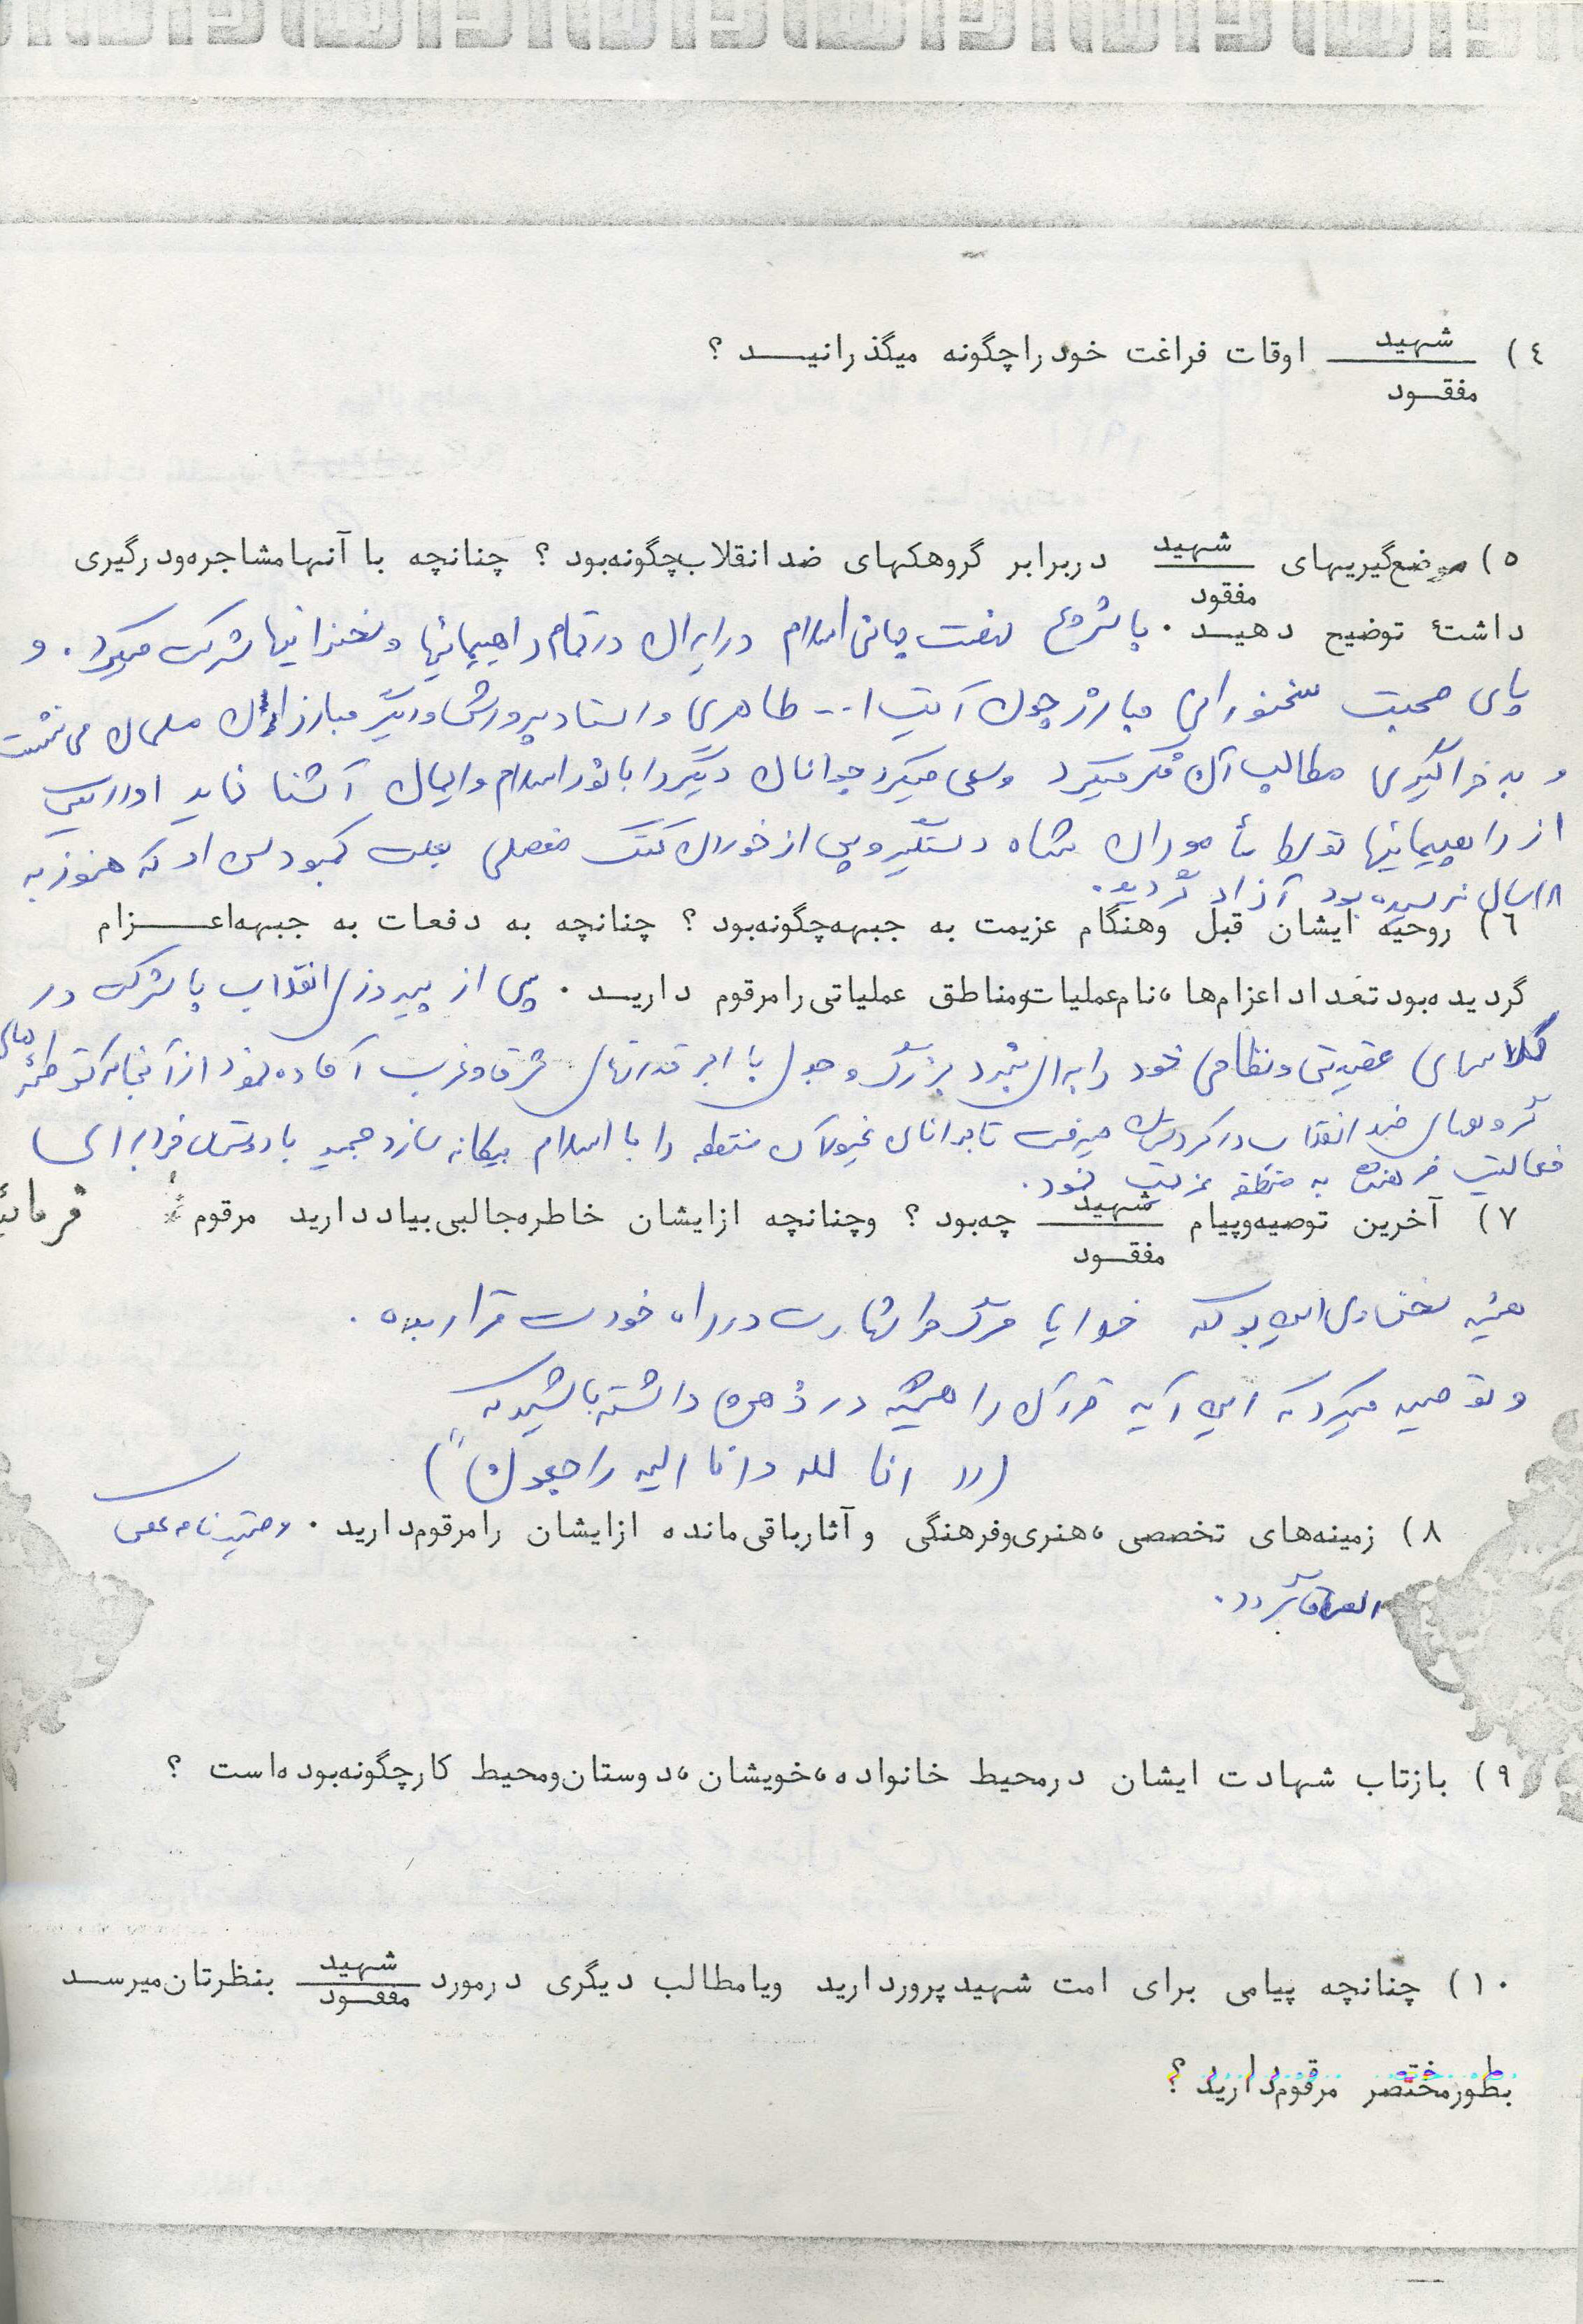 ٤) شهید اوقات فراغت خود را چگونه میگذرانید ؟
مفقود
٥) موضع‌گیریهای شهید دربرابر گروهکهای ضد انقلاب چگونه بود ؟ چنانچه با آنها مشاجره و درگیری
مفقود
داشتهٔ توضیح دهید . با شروع نهضت جهانی اسلام در ایران در تمام راهپیمائیها و سخنرانیها شرکت میکرد . و
پای صحبت سخنوران مبارز چون آیت ا... طاهری و استاد پرورش و دیگر مبارزان مسلمان می نشست
و به فراگیری مطالب آن فکر میکرد و سعی میکرد جوانان دیگر را با نور اسلام و ایمان آشنا نماید او در یکی
از راهپیمائیها توسط مأموران شاه دستگیر و پس از خوردن کتک مفصلی بعلت کمبود سن او که هنوز به
۱۸ سال نرسیده بود آزاد گردید .
٦) روحیه ایشان قبل وهنگام عزیمت به جبهه چگونه بود ؟ چنانچه به دفعات به جبهه اعزام
گردیده بود تعداد اعزام‌ها ، نام عملیات ومناطق عملیاتی را مرقوم دارید . پس از پیروزی انقلاب با شرکت در
کلاسهای عقیدتی و نظامی خود را برای نبرد بزرگ و جدی با ابر قدرتهای شرق و غرب آماده نمود از آنجا که توطئه های
گروههای ضد انقلاب در کردستان میرفت تا جوانان غیور آن منطقه را با اسلام بیگانه سازد مجید با دوستان خود برای
فعالیت فرهنگی به منطقه عزیمت نمود .
٧) آخرین توصیه وپیام شهید چه بود ؟ وچنانچه ازایشان خاطره جالبی بیاد دارید مرقوم فرمائید
مفقود
همیشه سخن وی این بود که خدایا مرگ مرا شهادت در راه خودت قرار بده .
و توصیه میکرد که این آیه قرآن را همیشه در ذهن داشته باشید که
(( انا لله و انا الیه راجعون ))
٨) زمینه‌های تخصصی ، هنری وفرهنگی و آثار باقی مانده ازایشان را مرقوم دارید . وصیتنامه
٩) بازتاب شهادت ایشان درمحیط خانواده ، خویشان ، دوستان ومحیط کار چگونه بوده است ؟
١٠) چنانچه پیامی برای امت شهید پرور دارید ویا مطالب دیگری درمورد شهید بنظرتان میرسد
مفقود
بطور مختصر مرقوم دارید ؟